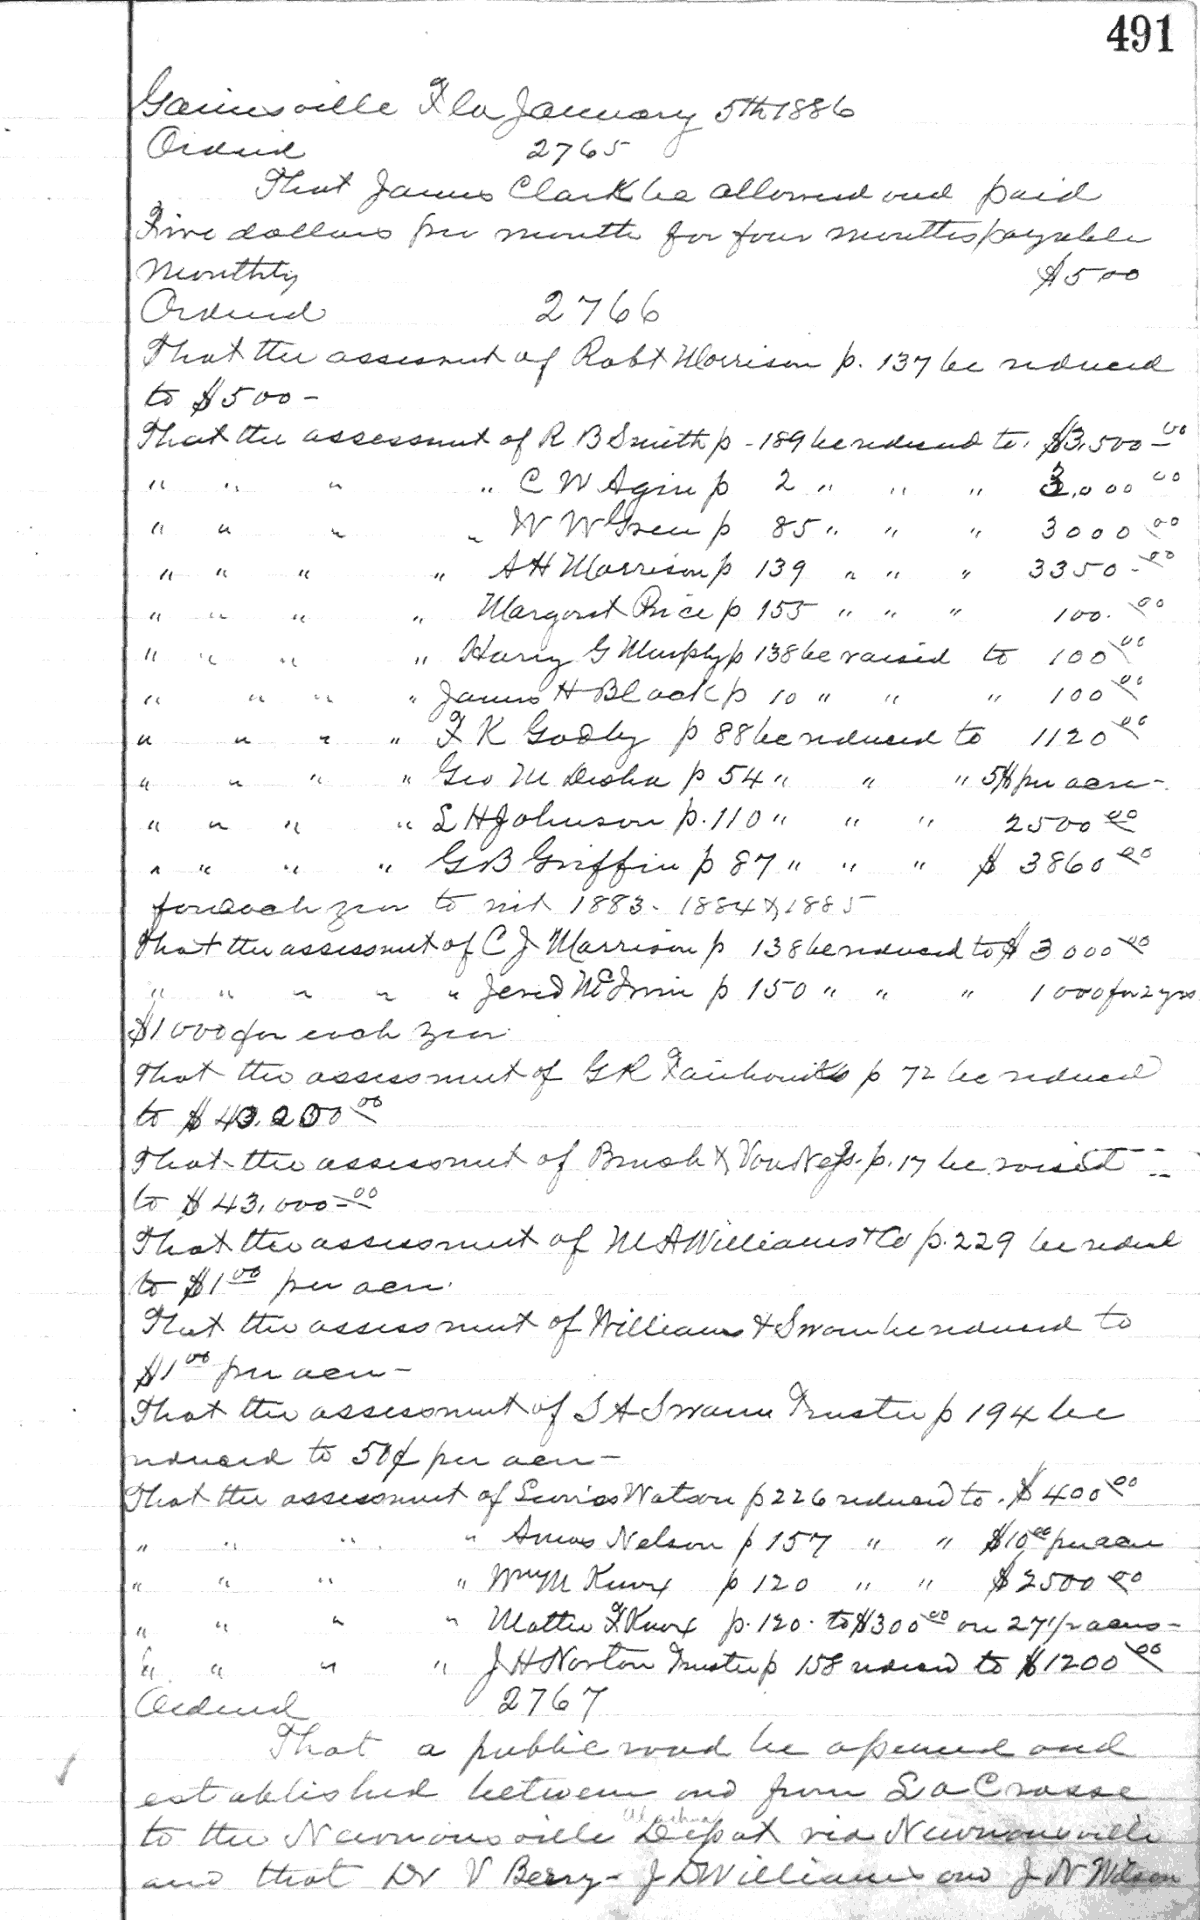 491
Gainesville Fla January 5th 1886
Ordered 2765
That James Clark be allowed and paid
Five dollars per month for four months payable
monthly $5 00
Ordered 2766
That the assesment of Robt Morrison p. 137 be reduced
to $500 -
That the assessment of R B Smith p - 189 be reduced to. $3,500 00
" " " " C W Agin p 2 " " " 3,000 00
" " " " W W Green p 85 " " " 3000 00
" " " " A H Morrison p 139 " " " 3350 - 00
" " " " Margaret Price p 155 " " " 100. 00
" " " " Harry G Murphy p 138 be raised to 100 00
" " " " James H Black p 10 " " " 100 00
" " " " F K Godby p 88 be reduced to 1120 00
" " " " Geo M Desha p 54 " " " 5$ per acre -
" " " " L H Johnson p. 110 " " " 2500 00
" " " " G B Griffin p 87 " " " $ 3860 00
for each year to wit 1883. 1884 & 1885
That the assessment of C J Morrison p 138 be reduced to $ 3000 00
" " " " " Jered McIrvin p 150 " " " 1000 for 2 yrs
$1000 for each year
That the assessment of G R Fairbanks p 72 be reduced
to $ 43.200 00
That the assessment of Brush & VanNess. p. 17 be raised
to $ 43,000 - 00
That the assessment of M A Williams & Co p. 229 be reducd
to $1 00 per acre.
That the assessment of Williams & Swann be reduced to
$1 00 per acre -
That the assessment of S A Swann Trustee p 194 be
reduced to 50¢ per acre -
That the assessment of Watson p 226 reduced to. $400 00
" " " " Amos Nelson p 157 " " $10 00 per acre
" " " " Wm M Knox p 120 " " $2500 00
" " " " Mattie F Knox p. 120. to $300 00 on 27 1/2 acres -
" " " " J H Norton Trustee p 158 reduced to $1200 00
Ordered 2767
That a public road be opened and
established between and from La Crosse
Alachua
to the Newnansville Depot via Newnansville
and that Dr V Berry - J D Williams and J N Wilson